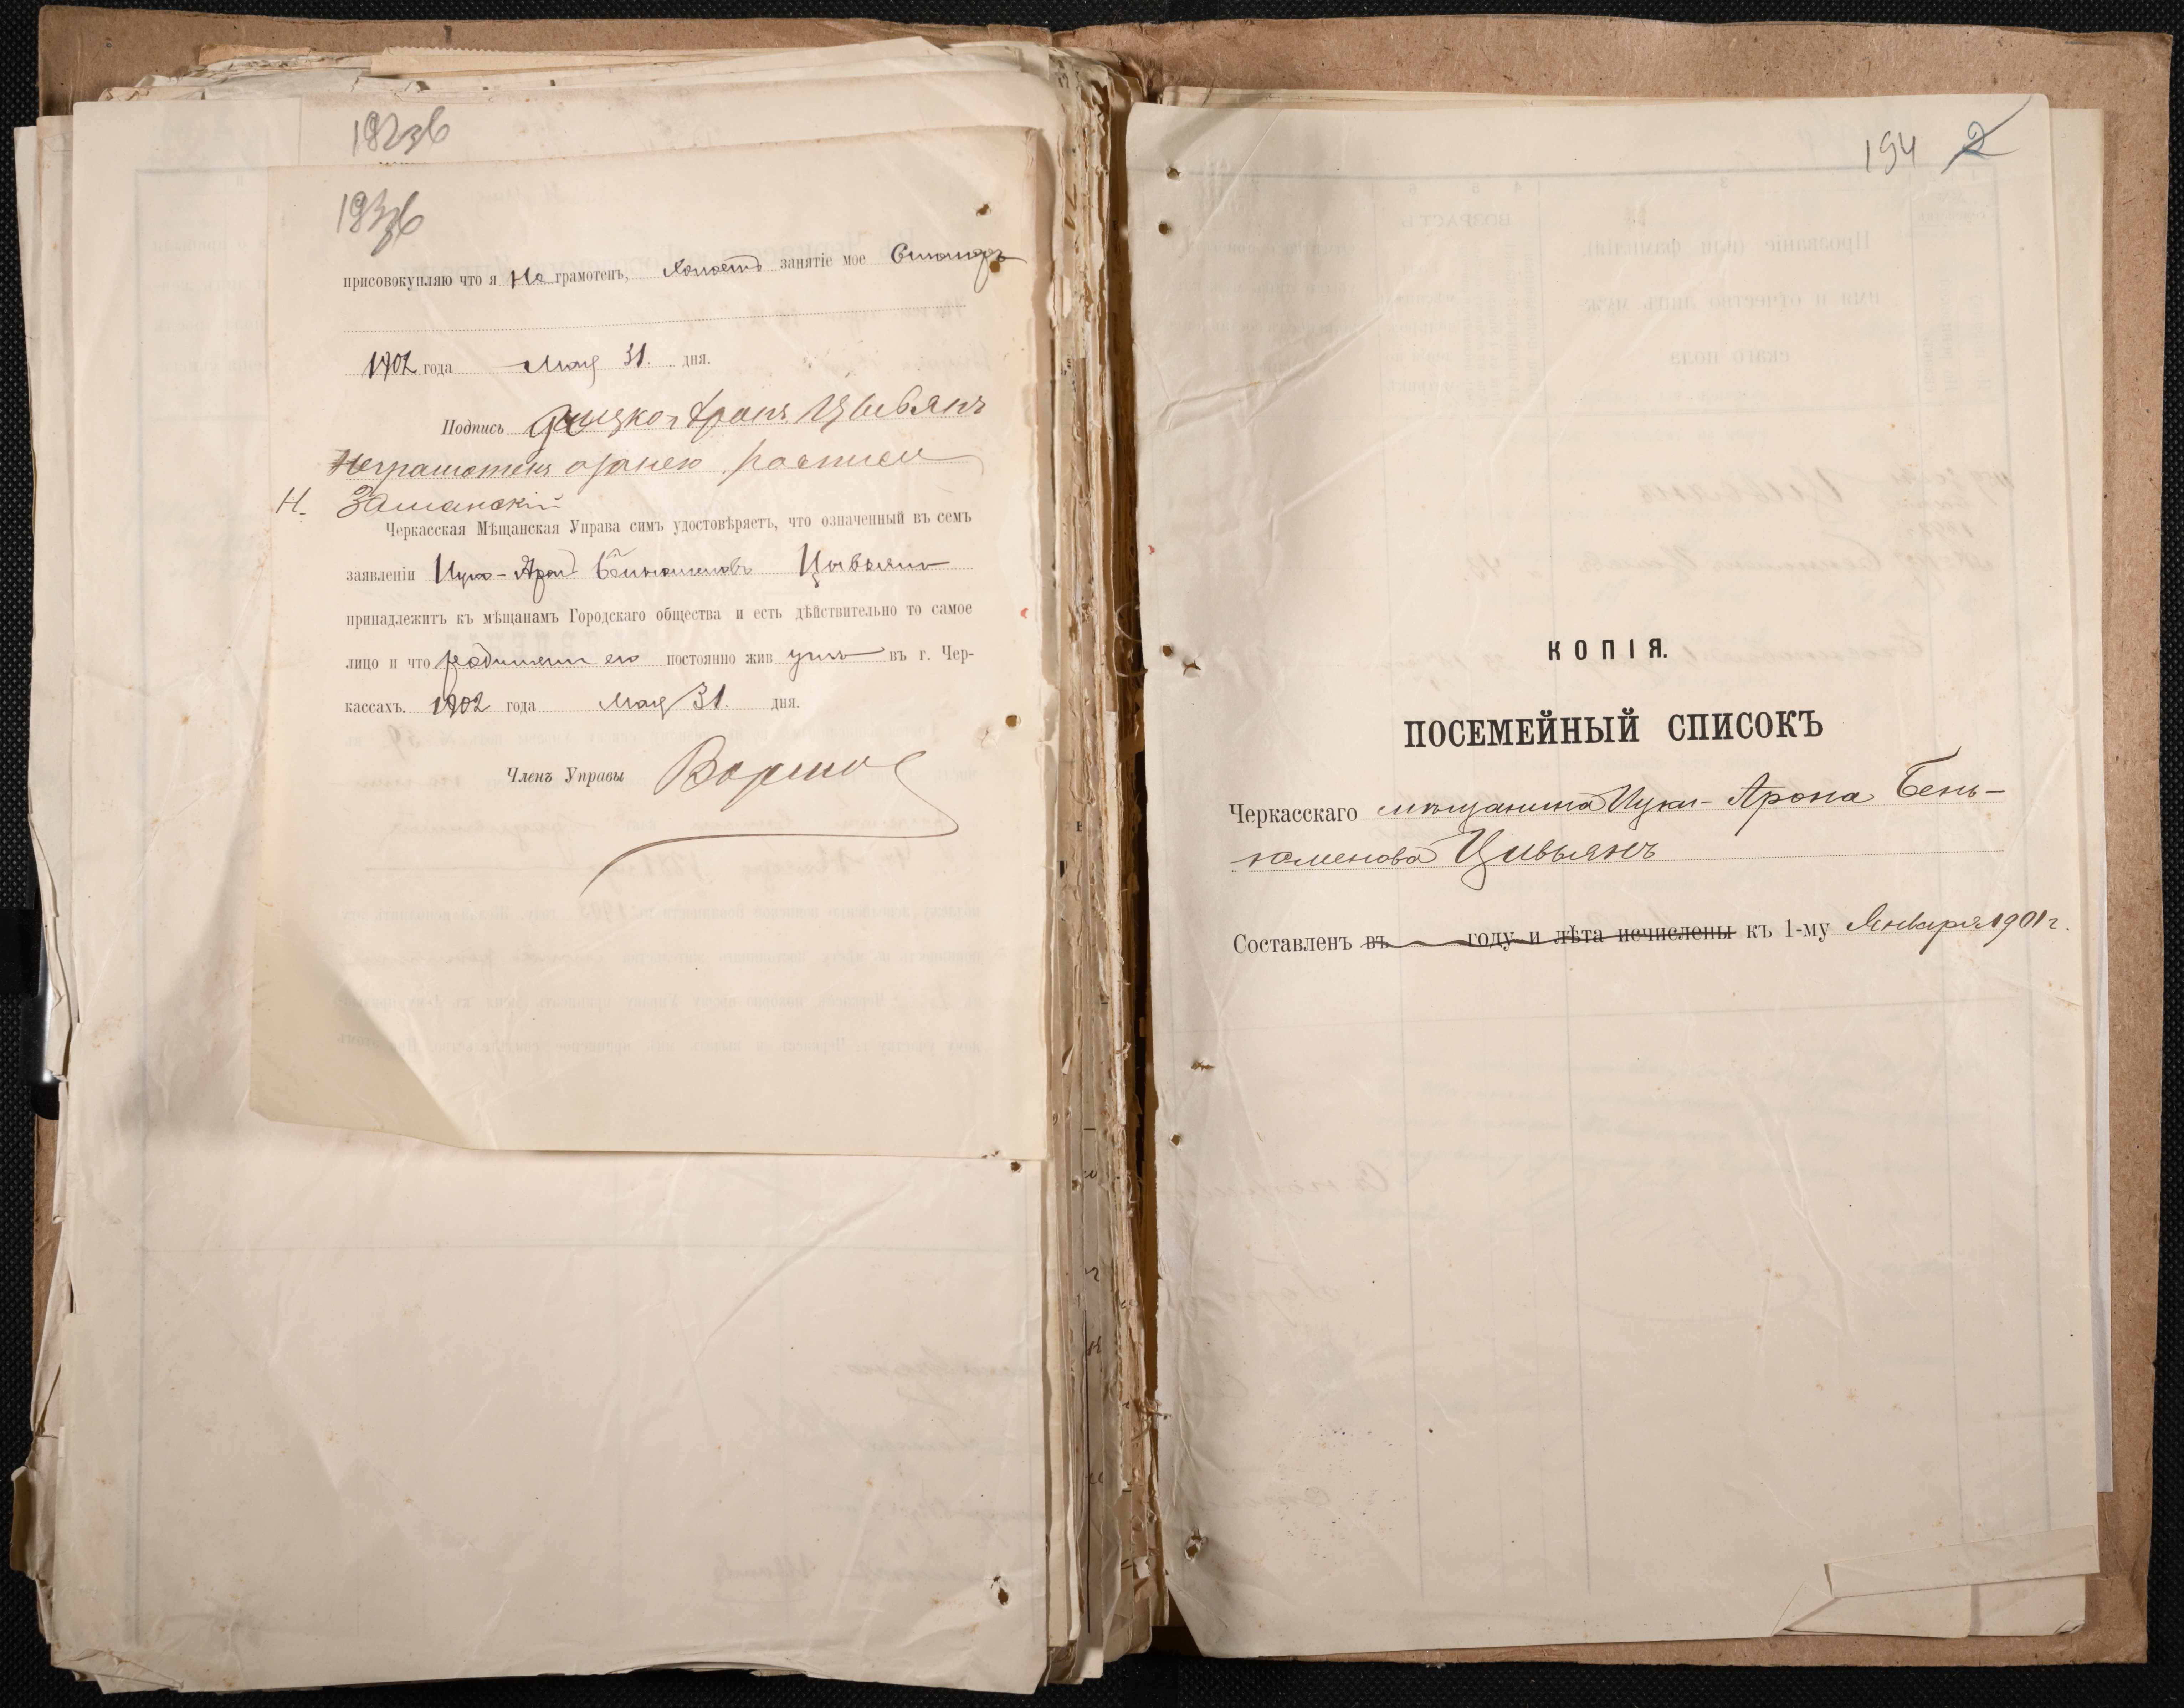 193об
присовокупляю что я не грамотенъ, холостъ занятіе мое столяръ
1902 года Мая 31. дня.
Подпись Ицко-Аронъ Цывьянъ
Неграмотенъ а за него росписался
Н. Заславскій
Черкасская Мѣщанская Управа симъ удостовѣряетъ, что означенный въ семъ
заявленіи Ицко-Аронъ Беньюменовъ Цывьянъ
принадлежитъ къ мѣщанамъ Городскаго общества и есть дѣйствительно то самое
лицо и что родители его постоянно живутъ въ г. Чер-
кассахъ. 1902 года Мая 31. дня.
Членъ Управы
194 2
КОПІЯ.
ПОСЕМЕЙНЫЙ СПИСОКЪ
Черкасскаго мѣщанина Ицки-Арона Бень-
юменова Цивьянъ
Составленъ въ году и лѣта исчислены къ 1-му Января 1901 г.